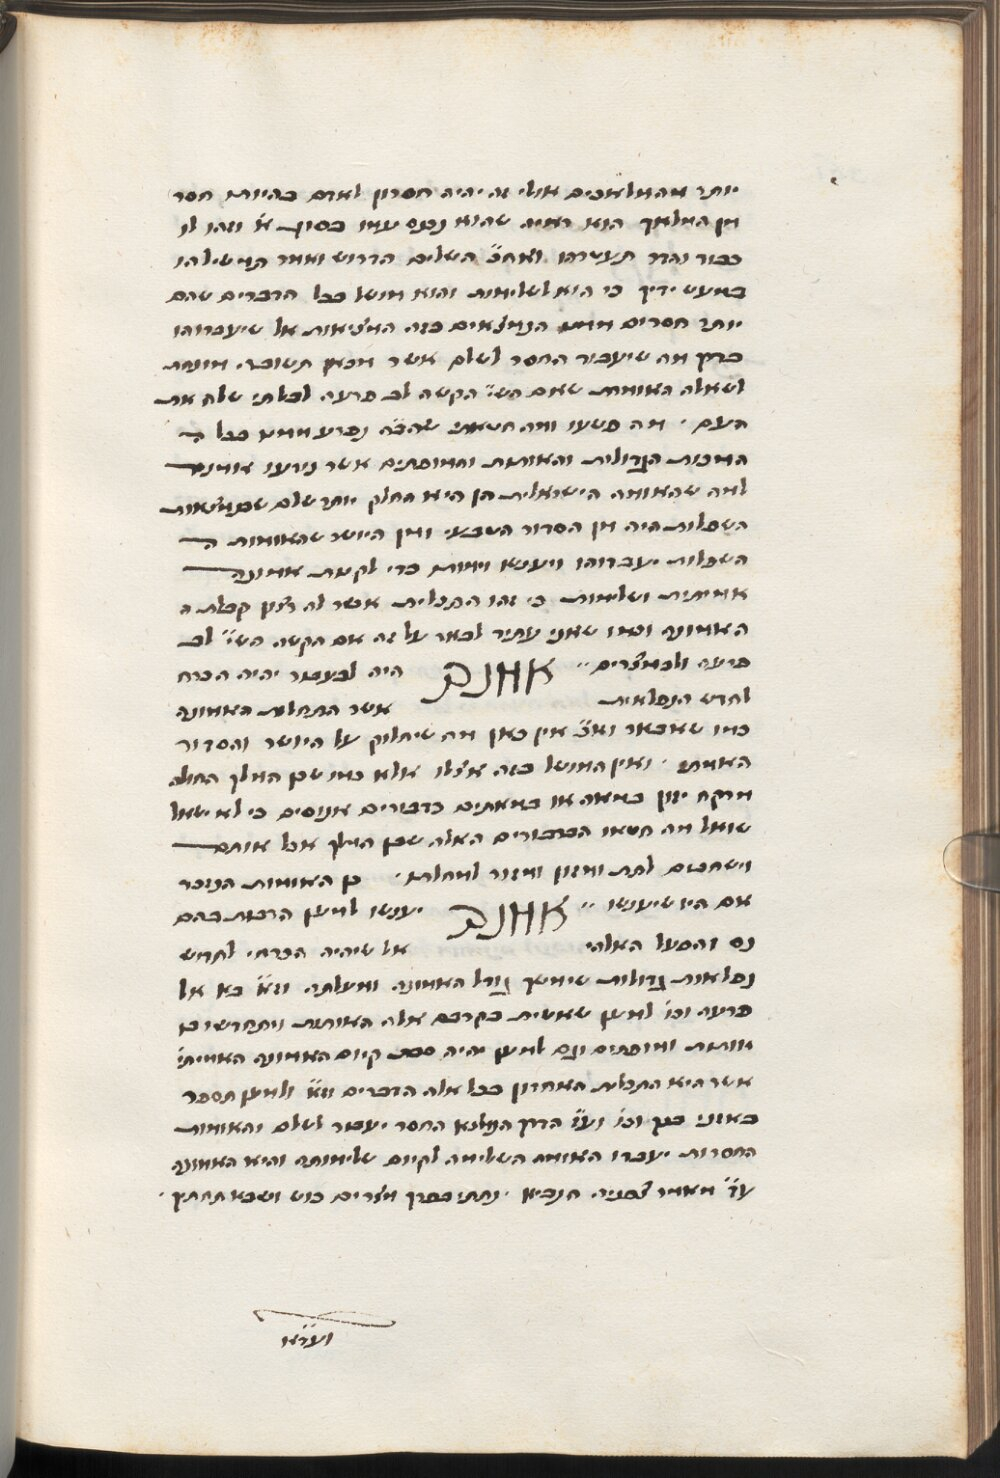 יותר מהמלאכים אולי זה יהיה חסרון לאדם בהיות חסר
מן המלאך הוא ראיה שהוא נכנס עמו בסוג א' וזהו לו
כבוד והדר תעטרהו ואח"כ השלים הדרוש ואמר תמשילהו
במעשי ידיך כי הוא לשלימות והוא מושל בכל הדברים שהם
יותר חסרים ממנו הנמצאים בזה המציאות אל שיעבדוהו
כדרך מה שיעבוד החסר לשלם אשר מכאן תשובה מונחת
לשאלה האומרת שאם הש"י הקשה לב פרעה לבלתי שלח את
העם · מה פשעו ומה חטאתו שהב"ה נפרע ממנו בכל ה
המכות הגדולות והאותות והמופתים אשר נודעו אומנם
למה שהאומה הישראלית הן היא החלק יותר שלם שבמציאות
השפלות היה מן הסדור הטבעי ומן היושר שהאומות ה
השפלות יעבדוהו ויענשו וימותו כדי לקנות אמונה
אמיתית ושלימות כי זהו התכלית אשר לה רצון קבלת ה
האמונה וכמו שאני עתיד לבאר על זה אם הקשה הש"י לב
פרעה ולבמצרים · אמנם היה לבעבור יהיה הכרח
לחדש הנפלאות אשר התחלת האמונה
כמו שאבאר וא"כ אין כאן מה שיחלוק על היושר והסדור
האמתי · ואין המושל בזה אצלו אלא כמו שבן המלך החולה
מרקח יזון במאה או במאתים ברבורים אנוסים כי לא ישאל
שואל מה חטאו הברבורים האלה שבן המלך אכל אותם
וישחטום לתת ומזון ומזור למחלתו · כן האומות הנזכר
אם היו שיענשו · אמנם יענשו למען הרבות בהם
נס והפעל האלהי אל שיהיה הכרחי לחדש
נפלאות גדולות שימשך גודל האמונה ומעלתה וז"א בא אל
פרעה וכו' למען שאשית בקרבם אלה האותות ויתחדשו בן
אותות ומופתים וגם למען יהיה סבת קיום האמונה האמיתי'
אשר היא התכלית האחרון בכל אלה הדברים וז"א ולמען תספר
באזני בנך וכו' וע"ז הדרך הנמצא החסר יעבוד לשלם והאומות
החסרות יעבדו האומה השלימה לקיום שלימותה והיא האמונה
ע"ד מאמר צפניה הנביא · נתתי כפרך מצרים כוש וסבא תחתיך ·